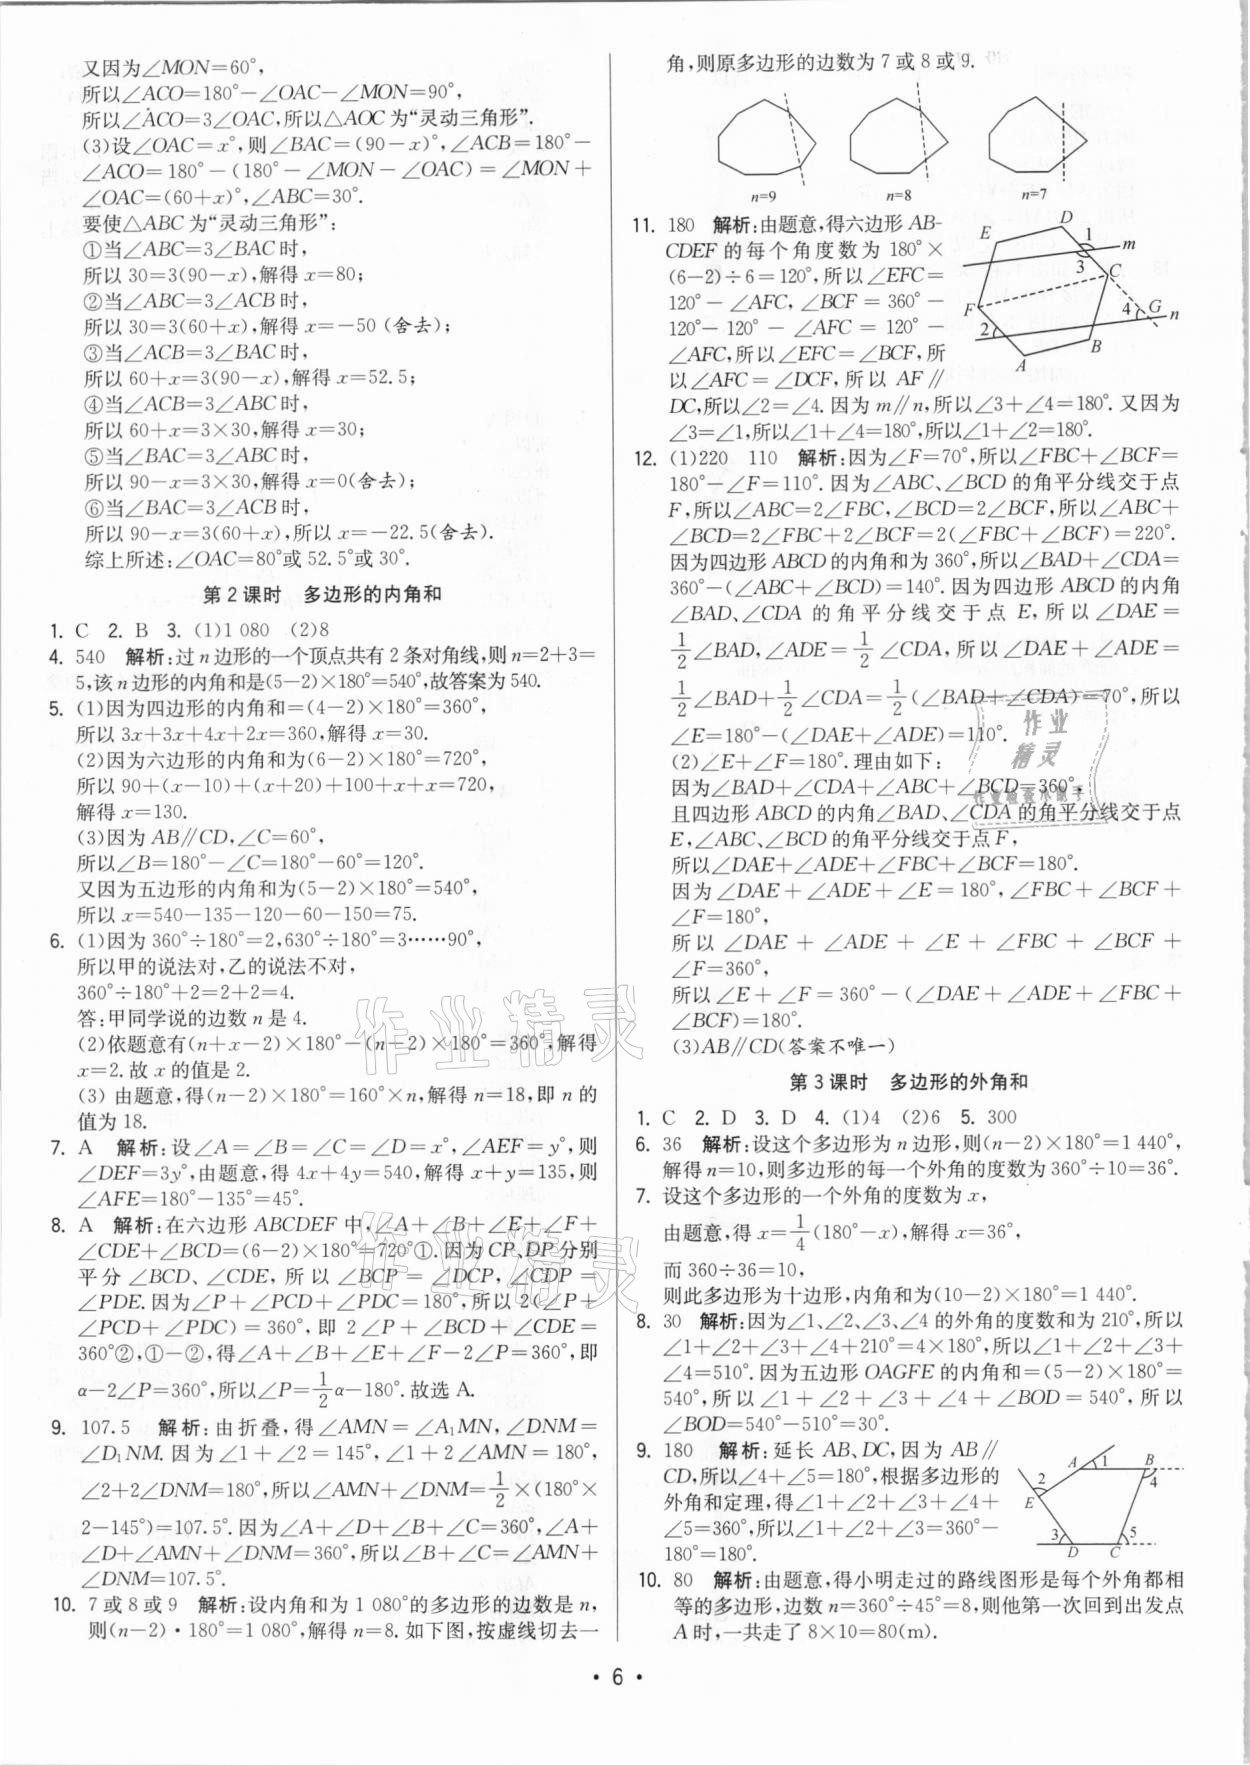 又因为∠MON=60°,
所以∠ACO=180°-∠OAC-∠MON=90°,
所以∠ACO=3∠OAC,所以△AOC为“灵动三角形”.
(3)设∠OAC=x°,则∠BAC=(90-x)°,∠ACB=180°-
∠ACO=180°-(180°-∠MON-∠OAC)=∠MON+
∠OAC=(60+x)°,∠ABC=30°.
要使△ABC为“灵动三角形”:
①当∠ABC=3∠BAC时,
所以30=3(90-x),解得x=80;
②当∠ABC=3∠ACB时,
所以30=3(60+x),解得x=-50(舍去);
③当∠ACB=3∠BAC时,
所以60+x=3(90-x),解得x=52.5;
④当∠ACB=3∠ABC时,
所以60+x=3×30,解得x=30;
⑤当∠BAC=3∠ABC时,
所以90-x=3×30,解得x=0(舍去);
⑥当∠BAC=3∠ACB时,
所以90-x=3(60+x),所以x=-22.5(舍去).
综上所述:∠OAC=80°或52.5°或30°.
第2课时 多边形的内角和
1. C 2. B 3. (1)1 080 (2)8
4. 540 解析:过n边形的一个顶点共有2条对角线,则n=2+3=
5,该n边形的内角和是(5-2)×180°=540°,故答案为540.
5. (1)因为四边形的内角和=(4-2)×180°=360°,
所以3x+3x+4x+2x=360,解得x=30.
(2)因为六边形的内角和为(6-2)×180°=720°,
所以90+(x-10)+(x+20)+100+x+x=720,
解得x=130.
(3)因为AB∥CD,∠C=60°,
所以∠B=180°-∠C=180°-60°=120°.
又因为五边形的内角和为(5-2)×180°=540°,
所以x=540-135-120-60-150=75.
6. (1)因为360°÷180°=2,630°÷180°=3……90°,
所以甲的说法对,乙的说法不对,
360°÷180°+2=2+2=4.
答:甲同学说的边数n是4.
(2)依题意有(n+x-2)×180°-(n-2)×180°=360°,解得
x=2.故x的值是2.
(3)由题意,得(n-2)×180°=160°×n,解得n=18,即n的
值为18.
7. A 解析:设∠A=∠B=∠C=∠D=x°,∠AEF=y°,则
∠DEF=3y°,由题意,得4x+4y=540,解得x+y=135,则
∠AFE=180°-135°=45°.
8. A 解析:在六边形ABCDEF中,∠A+∠B+∠E+∠F+
∠CDE+∠BCD=(6-2)×180°=720°①.因为CP、DP分别
平分∠BCD、∠CDE,所以∠BCP=∠DCP,∠CDP=
∠PDE.因为∠P+∠PCD+∠PDC=180°,所以2(∠P+
∠PCD+∠PDC)=360°,即2∠P+∠BCD+∠CDE=
360°②,①-②,得∠A+∠B+∠E+∠F-2∠P=360°,即
α-2∠P=360°,所以∠P=1/2α-180°.故选A.
9. 107.5 解析:由折叠,得∠AMN=∠A₁MN,∠DNM=
∠D₁NM.因为∠1+∠2=145°,∠1+2∠AMN=180°,
∠2+2∠DNM=180°,所以∠AMN+∠DNM=1/2×(180°×
2-145°)=107.5°.因为∠A+∠D+∠B+∠C=360°,∠A+
∠D+∠AMN+∠DNM=360°,所以∠B+∠C=∠AMN+
∠DNM=107.5°.
10. 7或8或9 解析:设内角和为1 080°的多边形的边数是n,
则(n-2)·180°=1 080°,解得n=8.如下图,按虚线切去一
角,则原多边形的边数为7或8或9.
n=9 n=8 n=7
11. 180 解析:由题意,得六边形AB-
CDEF的每个角度数为180°×
(6-2)÷6=120°,所以∠EFC=
120°-∠AFC,∠BCF=360°-
120°-120°-∠AFC=120°-
∠AFC,所以∠EFC=∠BCF,所
以∠AFC=∠DCF,所以AF∥
DC,所以∠2=∠4.因为m∥n,所以∠3+∠4=180°.又因为
∠3=∠1,所以∠1+∠4=180°,所以∠1+∠2=180°.
E D 1 m 3 C F 4 G n 2 B A
12. (1)220 110 解析:因为∠F=70°,所以∠FBC+∠BCF=
180°-∠F=110°.因为∠ABC、∠BCD的角平分线交于点
F,所以∠ABC=2∠FBC,∠BCD=2∠BCF,所以∠ABC+
∠BCD=2∠FBC+2∠BCF=2(∠FBC+∠BCF)=220°.
因为四边形ABCD的内角和为360°,所以∠BAD+∠CDA=
360°-(∠ABC+∠BCD)=140°.因为四边形ABCD的内角
∠BAD、∠CDA的角平分线交于点E,所以∠DAE=
1/2∠BAD,∠ADE=1/2∠CDA,所以∠DAE+∠ADE=
1/2∠BAD+1/2∠CDA=1/2(∠BAD+∠CDA)=70°,所以
∠E=180°-(∠DAE+∠ADE)=110°.
(2)∠E+∠F=180°.理由如下:
因为∠BAD+∠CDA+∠ABC+∠BCD=360°,
且四边形ABCD的内角∠BAD、∠CDA的角平分线交于点
E,∠ABC、∠BCD的角平分线交于点F,
所以∠DAE+∠ADE+∠FBC+∠BCF=180°.
因为∠DAE+∠ADE+∠E=180°,∠FBC+∠BCF+
∠F=180°,
所以∠DAE+∠ADE+∠E+∠FBC+∠BCF+
∠F=360°,
所以∠E+∠F=360°-(∠DAE+∠ADE+∠FBC+
∠BCF)=180°.
(3)AB∥CD(答案不唯一)
第3课时 多边形的外角和
1. C 2. D 3. D 4. (1)4 (2)6 5. 300
6. 36 解析:设这个多边形为n边形,则(n-2)×180°=1 440°,
解得n=10,则多边形的每一个外角的度数为360°÷10=36°.
7. 设这个多边形的一个外角的度数为x,
由题意,得x=1/4(180°-x),解得x=36°,
而360÷36=10,
则此多边形为十边形,内角和为(10-2)×180°=1 440°.
8. 30 解析:因为∠1、∠2、∠3、∠4的外角的度数和为210°,所以
∠1+∠2+∠3+∠4+210°=4×180°,所以∠1+∠2+∠3+
∠4=510°.因为五边形OAGFE的内角和=(5-2)×180°=
540°,所以∠1+∠2+∠3+∠4+∠BOD=540°,所以
∠BOD=540°-510°=30°.
9. 180 解析:延长AB、DC,因为AB∥
CD,所以∠4+∠5=180°,根据多边形的
外角和定理,得∠1+∠2+∠3+∠4+
∠5=360°,所以∠1+∠2+∠3=360°-
180°=180°.
A 1 B 4 2 E 3 D C 5
10. 80 解析:由题意,得小明走过的路线图形是每个外角都相
等的多边形,边数n=360°÷45°=8,则他第一次回到出发点
A时,一共走了8×10=80(m).
作业精灵
作业精灵
作业
精灵
• 6 •